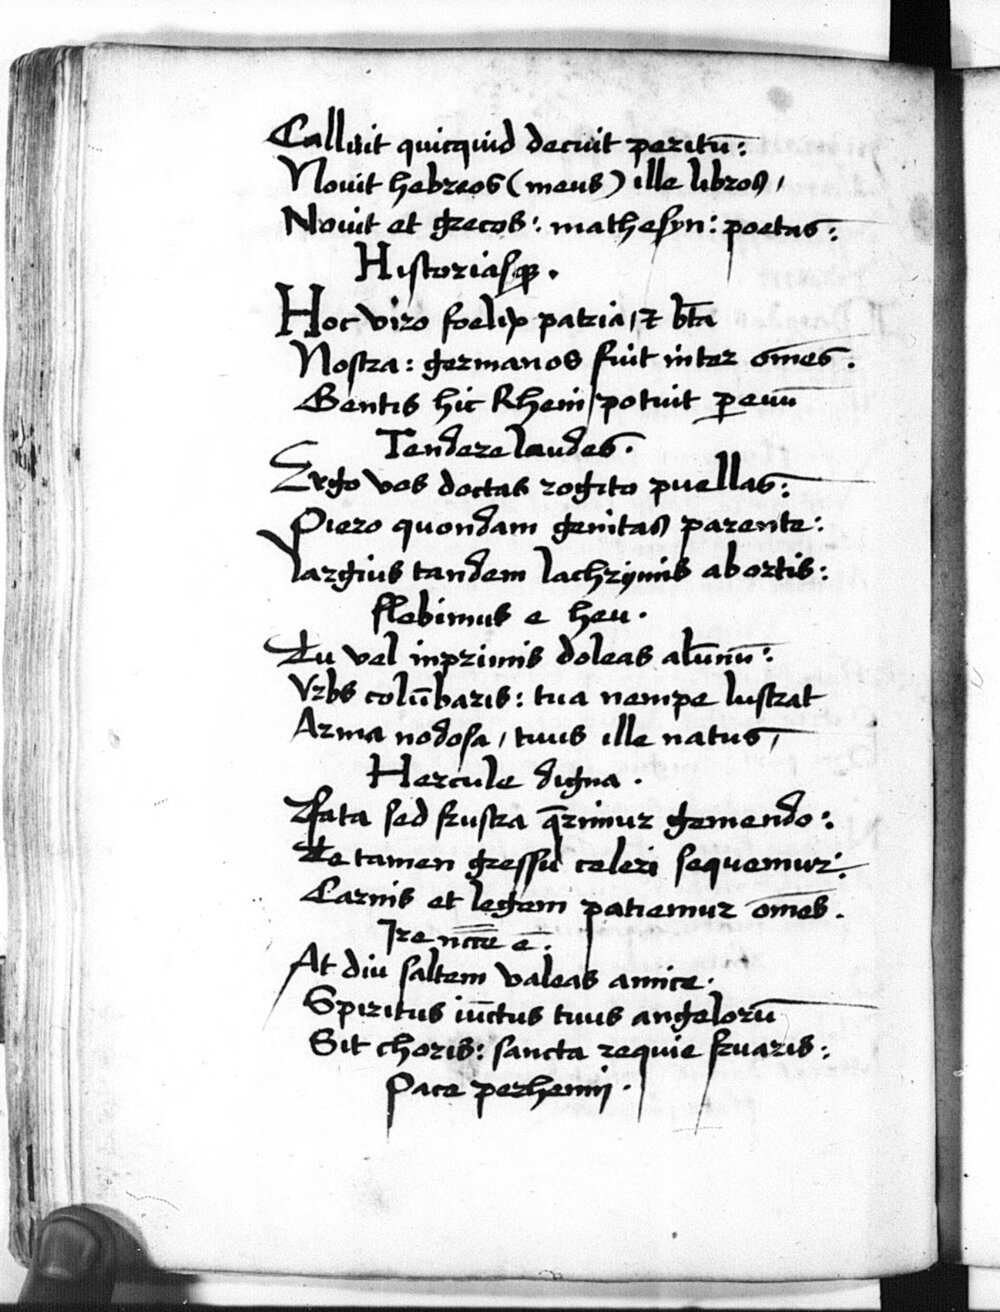 Calluit quicquid decuit peritū:
Nouit hebreos (meus) ille libros,
Nouit et grecos: mathesyn: poetas:
Historiasqꝫ.
Hoc viro foelix patria, ⁊ bt̄a
Nostra: germanos fuit inter om̄es.
Gentis hic Rheni potuit ꝑ euū
Tendere laudes.
Ergo vos doctas rogito puellas:
Piero quondam genitas parente:
Largius tandem lachrymis abortis:
flebimus e heu.
Tu vel inprimis doleas alūnū:
Vrbs colūbaris: tua nempe lustrat
Arma nodosa, tuus ille natus,
Hercule digna.
Fata sed frustra q̄rimur gemendo:
Te tamen gressu celeri sequemur:
Carnis et legem patiemur om̄es.
Ire nc̄cē ē.
At diu saltem valeas amice.
Spiritus iūctus tuus angelorū
Sit choris: sancta requie fruaris:
Pace perhenni.